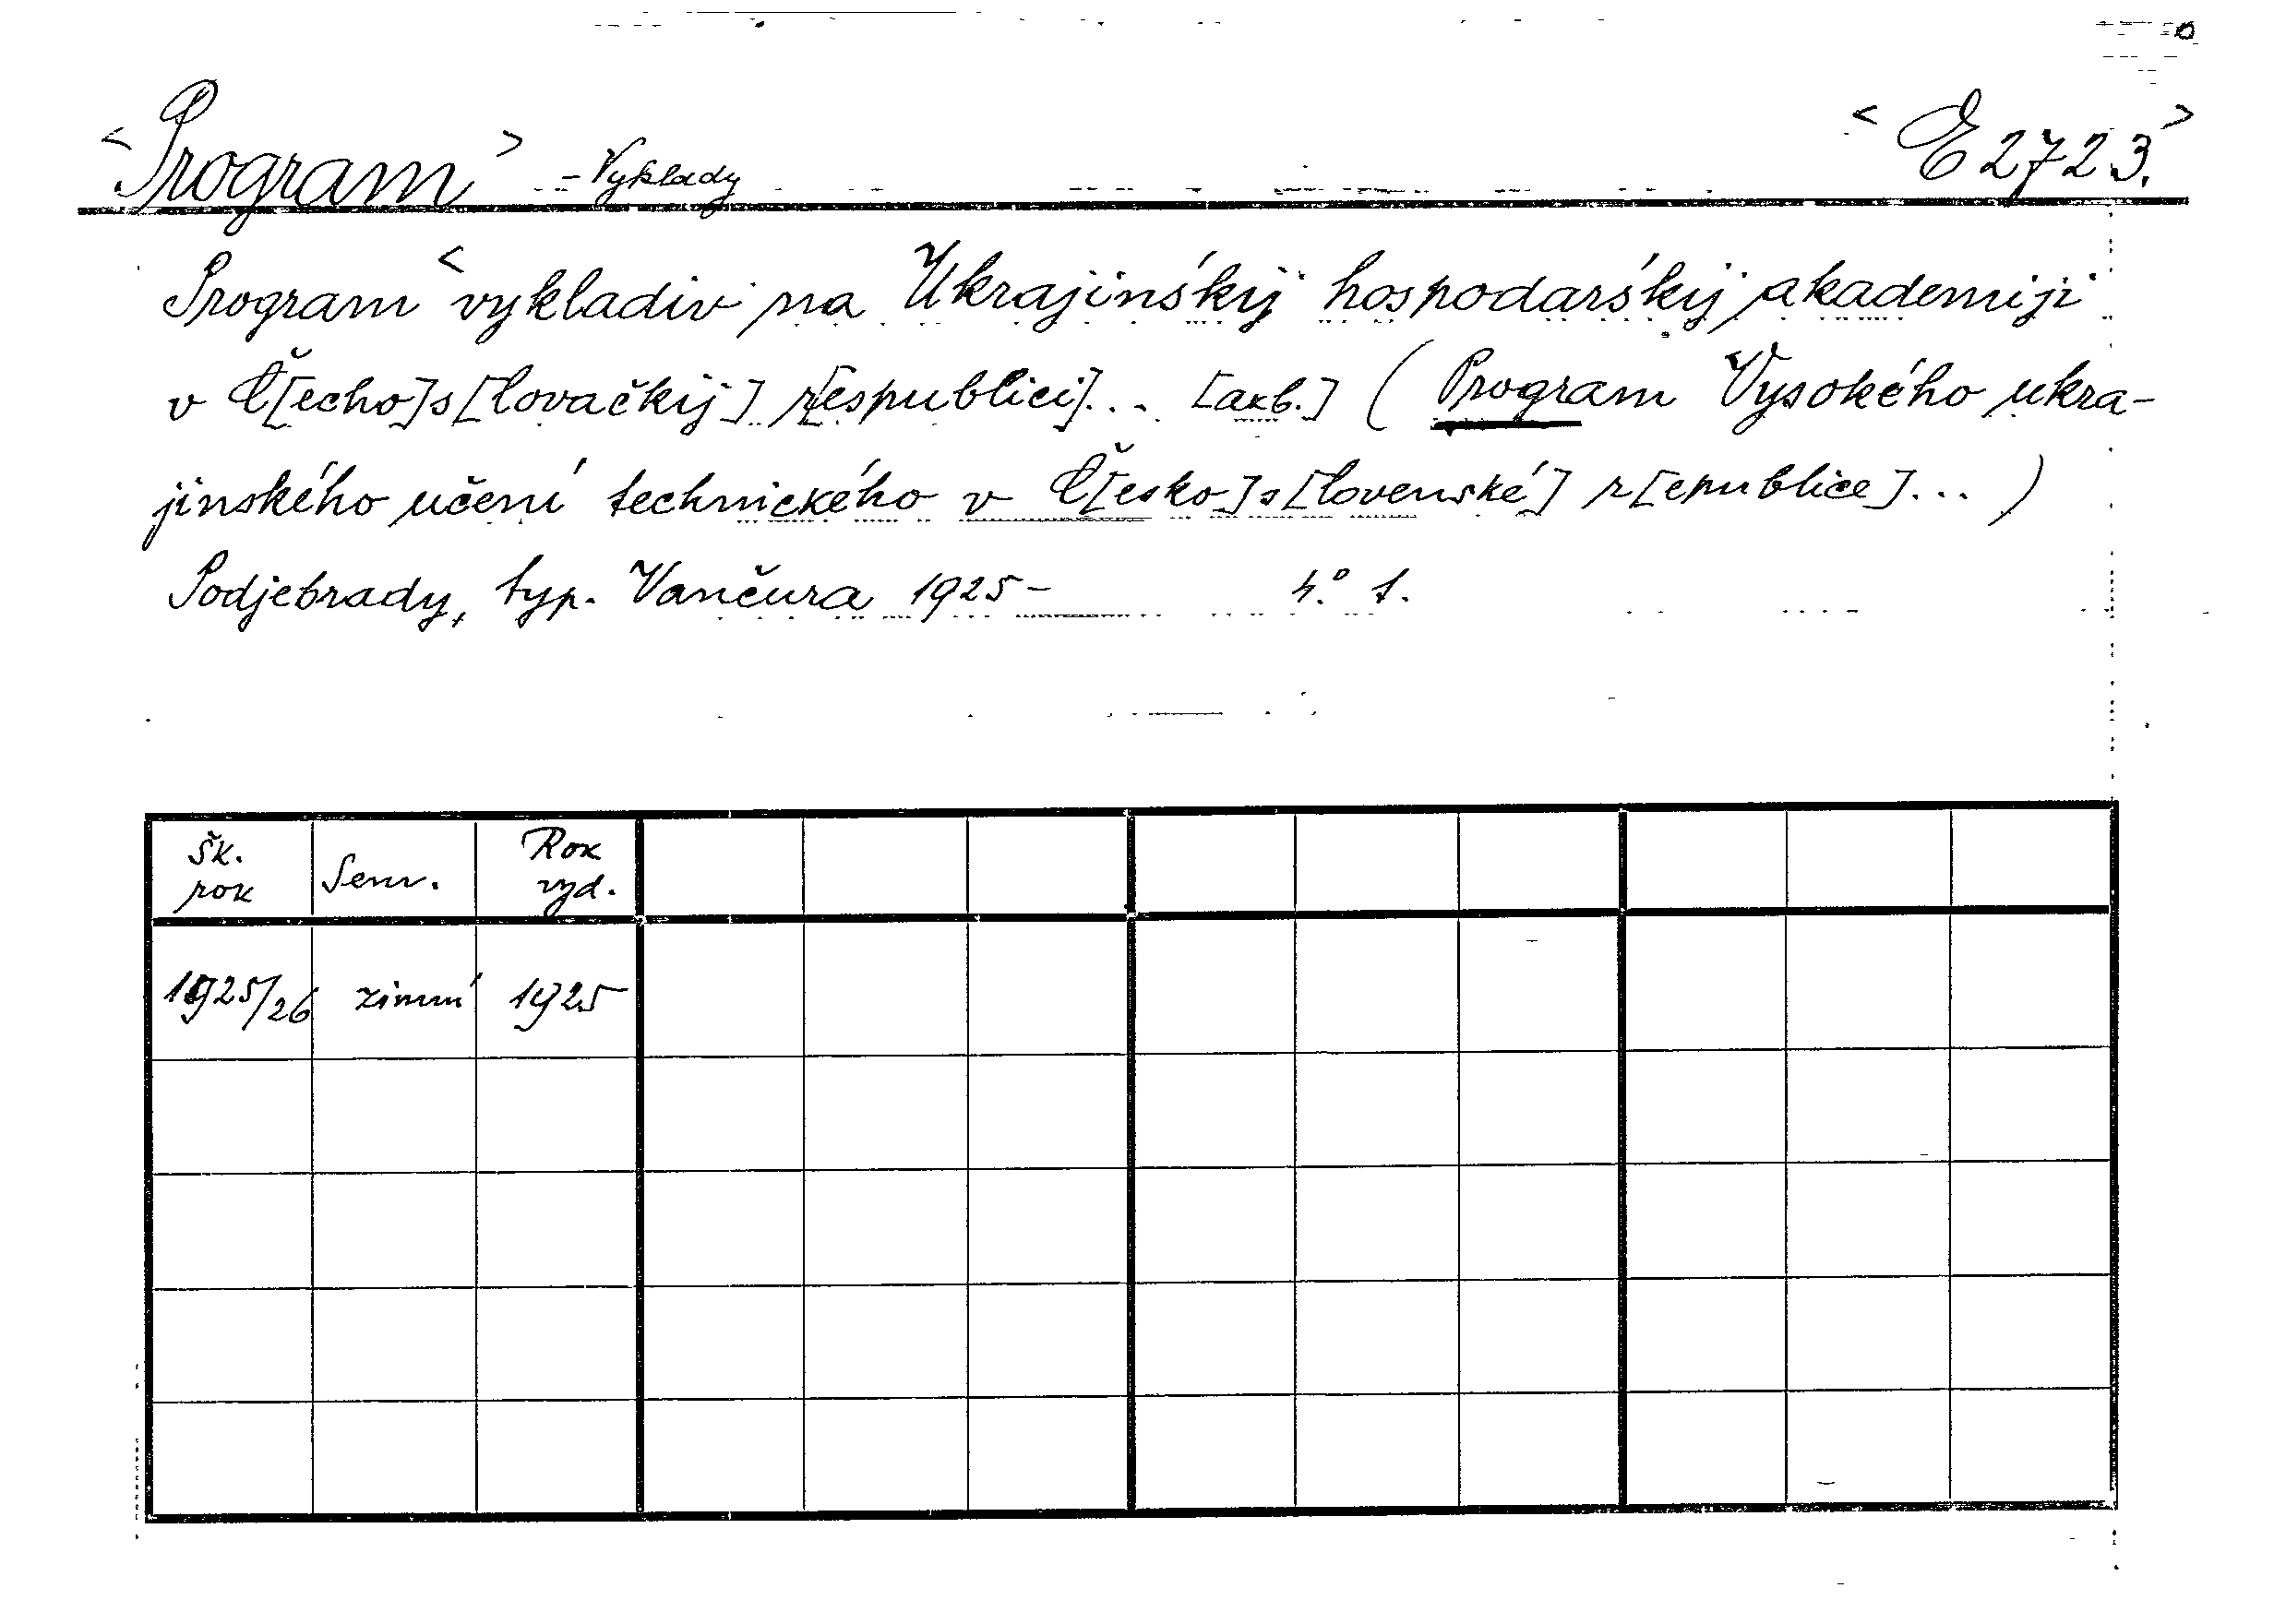 <Program> - Vyklady <E 2723.>
Program <vykladiv na Ukrajinśkij hospodarśkij akademiji
v Č[echo]s[lovačkij] r[espublici]... [azb.] (Program Vysokého ukra-
jinského učení technického v Č[esko]s[lovenské] r[epublice]...)
Podjebrady, typ. Vančura 1925- 4.° s.
Šk. rok Sem. Rok vyd.
1925/26 zimní 1925